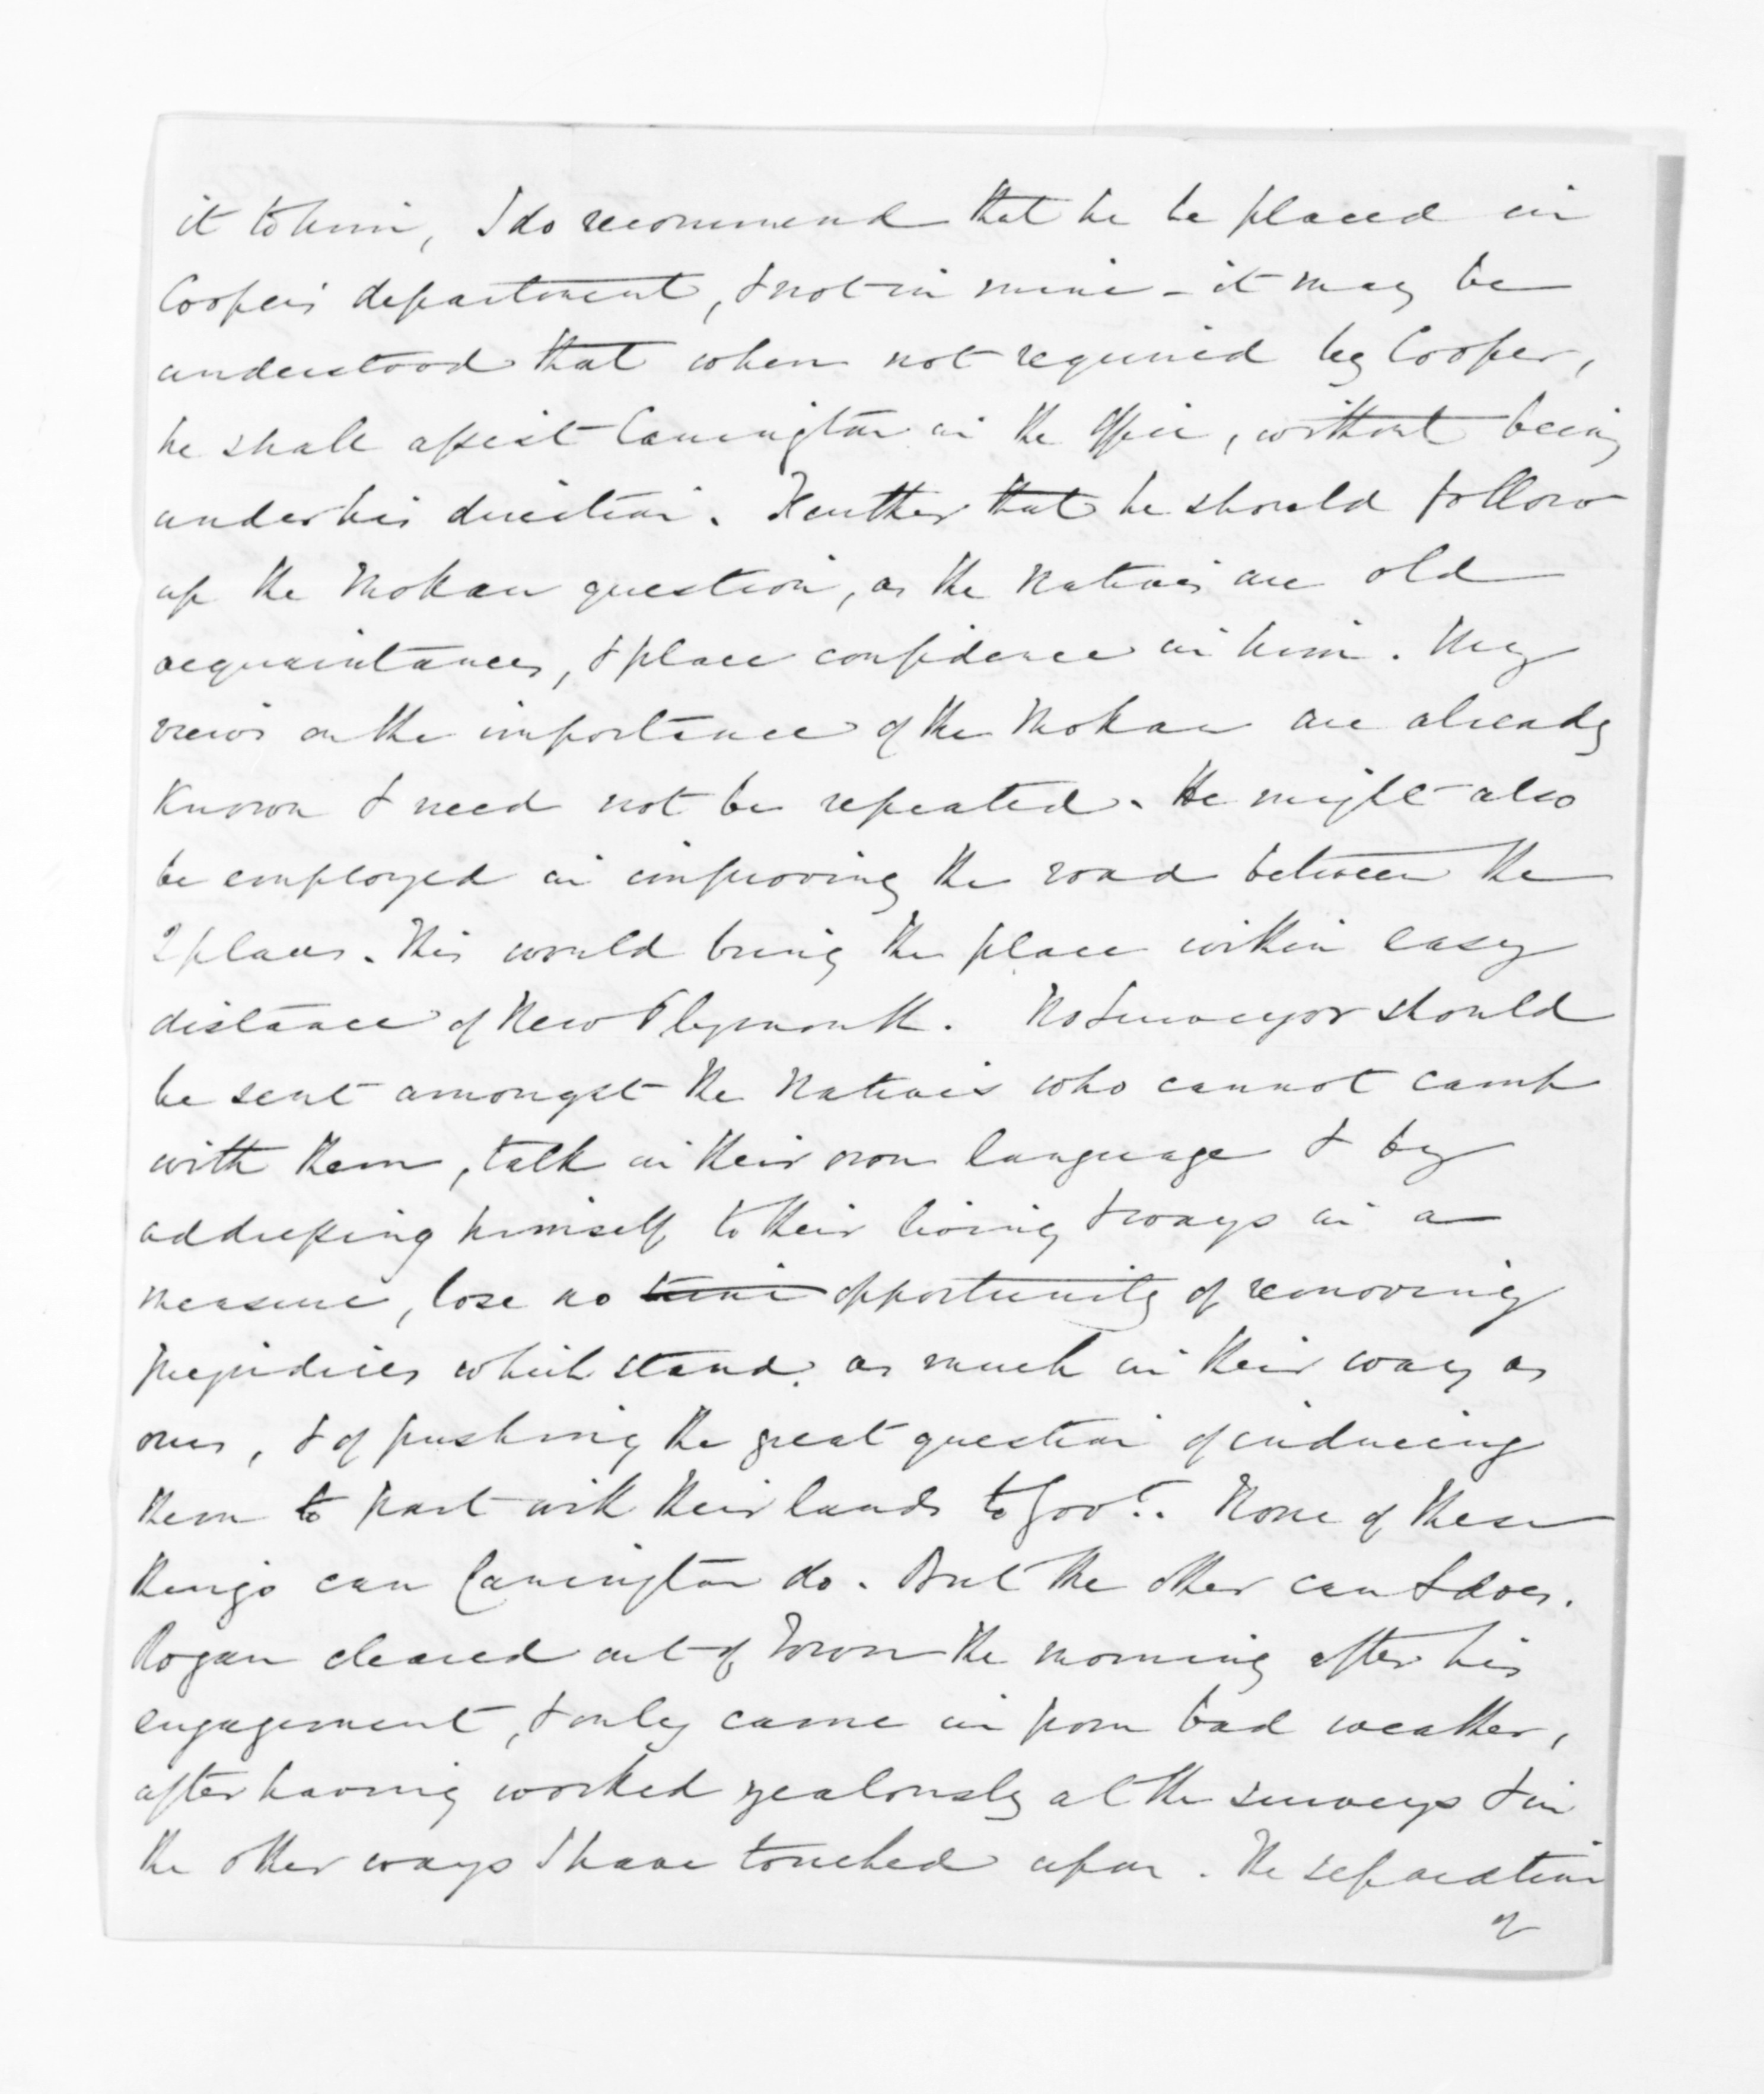 it to him, I do recommend that he be placed in
Cooper's department, & not in mine - it may be
understood that when not required by Cooper,
he shall assist Carrington in the Office, without being
under his direction. Further that he should follow
up the Mokau question, as the Natives are old
acquaintances, & place confidence in him. My
views on the importance of the Mokau are already
known & need not be repeated. He might also
be employed in improving the road between the
2 places. This would bring the place within easy
distance of New Plymouth. No Surveyor should
be sent amongst the Natives who cannot camp
with them, talk in their own language & by
addressing himself to their living & ways in a
measure, lose no time opportunity of removing
prejudices which stand as much in their way as
ours, & of pushing the great question of inducing
them to part with their lands to Govt. None of these
things can Carrington do. But the other can & does.
Rogan cleared out of Town the morning after his
engagement, & only came in from bad weather,
after having worked zealously at the surveys & in
the other ways I have touched upon. The separation
of